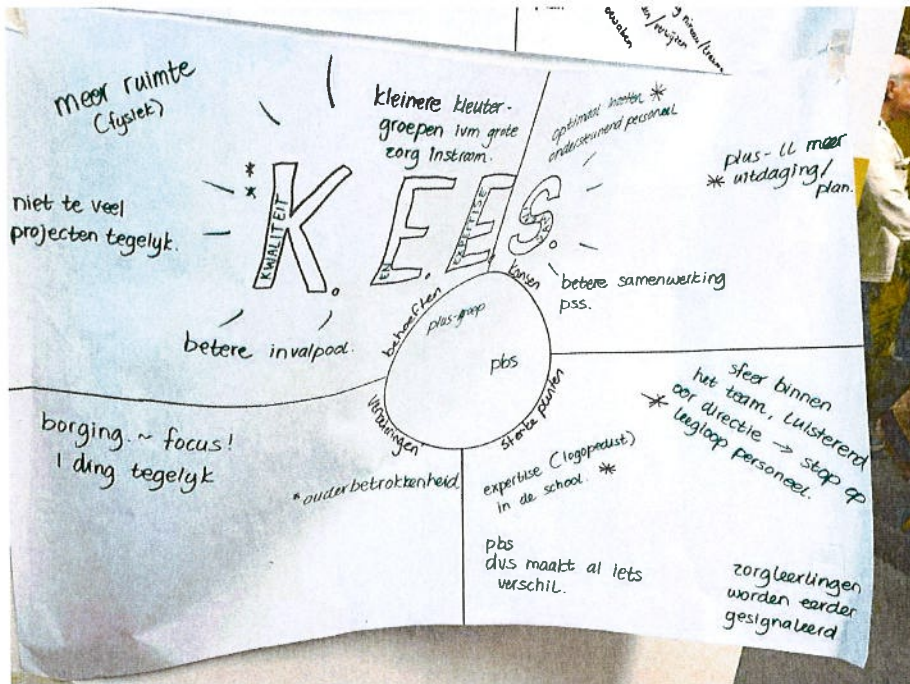 meer ruimte
(fysiek)
niet te veel
projecten tegelijk.
betere invalpool.
kleinere kleuter-
groepen ivm grote
zorg instroom.
K. E. E S.
KWALITEIT
EN
EXPERTISE
optimaal *
ondersteunend personeel
plus-ll meer
* uitdaging/
plan.
betere samenwerking
pss.
behoeften
kansen
plus-groep
pbs
sterke punten
borging. ~ focus!
1 ding tegelijk
*ouderbetrokkenheid
expertise (logopedist)
in de school. *
pbs
dus maakt al iets
verschil.
sfeer binnen
het team, luisterend
* oor directie → stop op
leegloop personeel.
zorgleerlingen
worden eerder
gesignaleerd